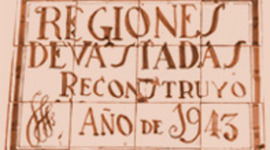 REGIONES
DEVASTADAS
RECONSTRUYO
AÑO DE 1943